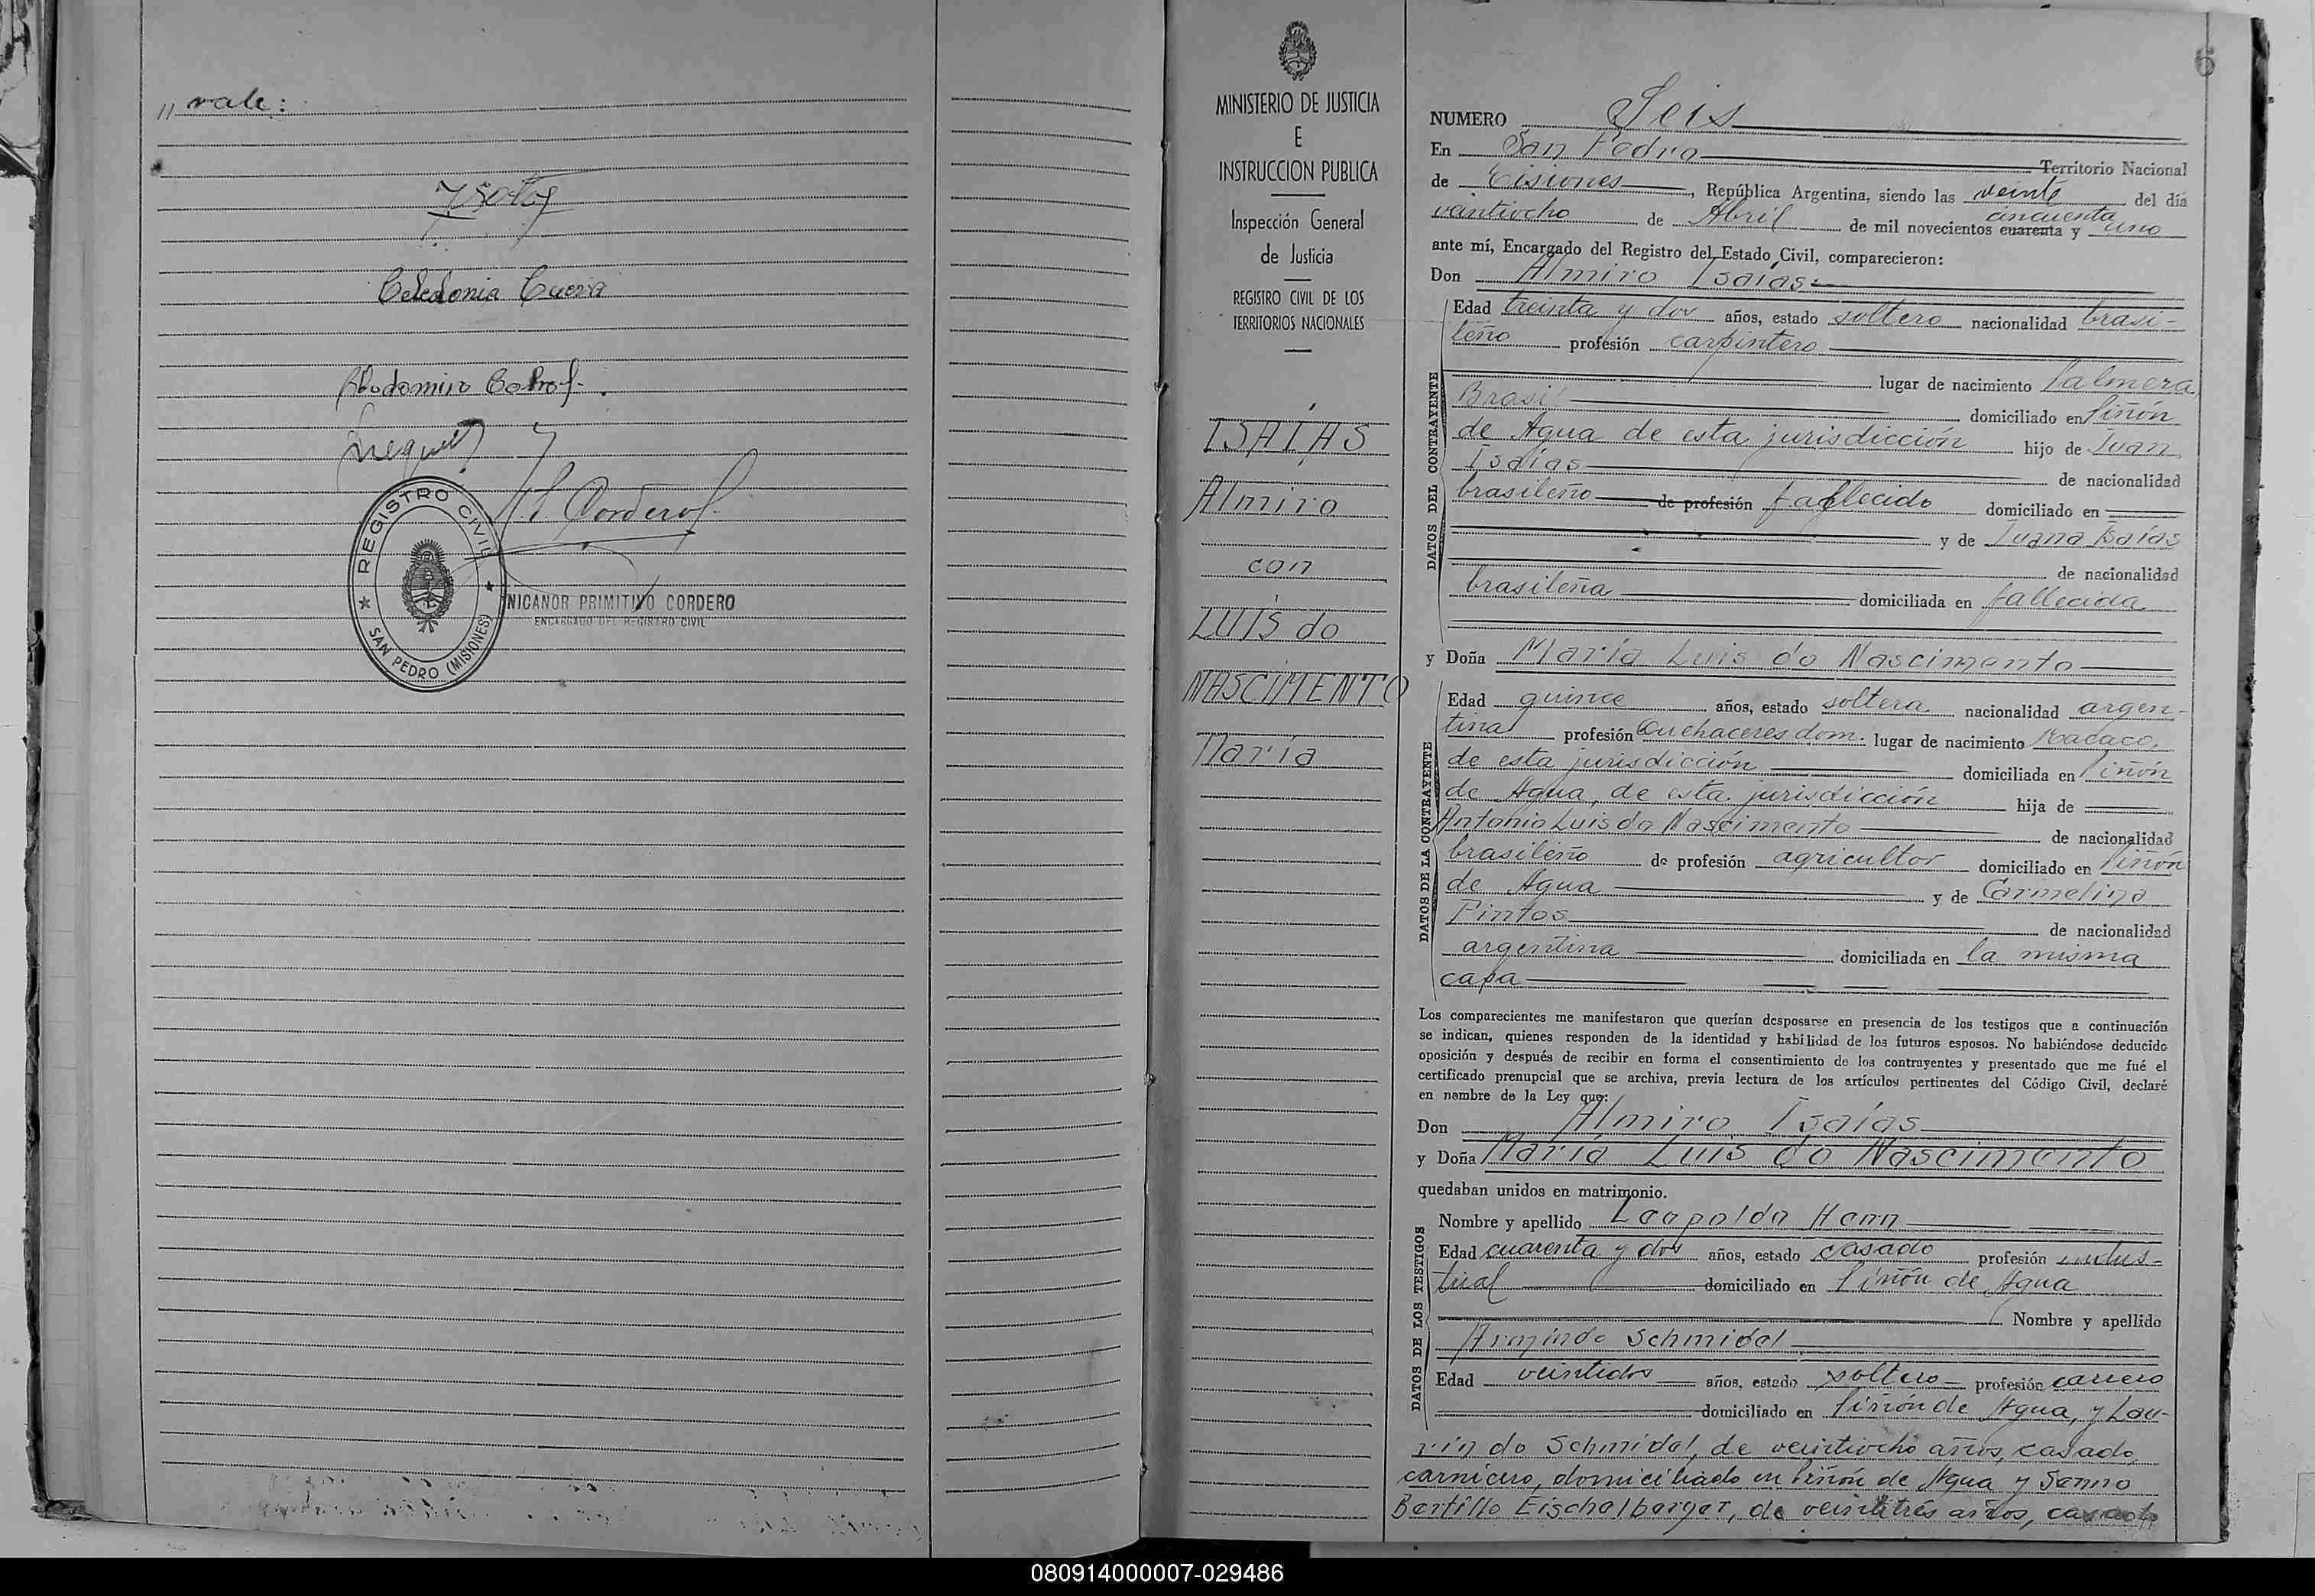 " vale:
Celedonia Cuera
REGISTRO CIVIL
SAN PEDRO (MISIONES)
NICANOR PRIMITIVO CORDERO
ENCARGADO DEL REGISTRO CIVIL
MINISTERIO DE JUSTICIA
E
INSTRUCCION PUBLICA
Inspección General
de Justicia
REGISTRO CIVIL DE LOS
TERRITORIOS NACIONALES
ISAÍAS
Almiro
con
LUÍS do
NASCIMENTO
María
6
NUMERO Seis
En San Pedro Territorio Nacional
de Misiones, República Argentina, siendo las veinte del día
cincuenta
veintiocho de Abril de mil novecientos cuarenta y uno
ante mí, Encargado del Registro del Estado Civil, comparecieron:
Don Almiro Isaías
DATOS DEL CONTRAYENTE
Edad treinta y dos años, estado soltero nacionalidad brasi-
leño profesión carpintero
lugar de nacimiento Palmera
Brasil domiciliado en Piñón
de Agua de esta jurisdicción hijo de Juan
Isaías de nacionalidad
brasileño de profesión fallecido domiciliado en
y de Juana Isaías
de nacionalidad
brasileña domiciliada en fallecida
y Doña María Luis do Nascimento
DATOS DE LA CONTRAYENTE
Edad quince años, estado soltera nacionalidad argen-
tina profesión Quehaceres dom. lugar de nacimiento Macaco,
de esta jurisdicción domiciliada en Piñón
de Agua, de esta jurisdicción hija de
Antonio Luis do Nascimento de nacionalidad
brasileño de profesión agricultor domiciliado en Piñón
de Agua y de Carmelina
Pintos de nacionalidad
argentina domiciliada en la misma
casa
Los comparecientes me manifestaron que querían desposarse en presencia de los testigos que a continuación
se indican, quienes responden de la identidad y habilidad de los futuros esposos. No habiéndose deducido
oposición y después de recibir en forma el consentimiento de los contrayentes y presentado que me fué el
certificado prenupcial que se archiva, previa lectura de los artículos pertinentes del Código Civil, declaré
en nombre de la Ley que:
Don Almiro Isaías
y Doña María Luis do Nascimento
quedaban unidos en matrimonio.
DATOS DE LOS TESTIGOS
Nombre y apellido Leopoldo Henn
Edad cuarenta y dos años, estado casado profesión indus-
trial domiciliado en Piñón de Agua
Nombre y apellido
Armindo Schmidel
Edad veintidos años, estado soltero profesión carrero
domiciliado en Piñón de Agua, y Lau-
rindo Schmidel, de veintiocho años, casado,
carnicero, domiciliado en Piñón de Agua y Senno
Bertillo Eischelberger, de veintitrés años, casado
080914000007-029486